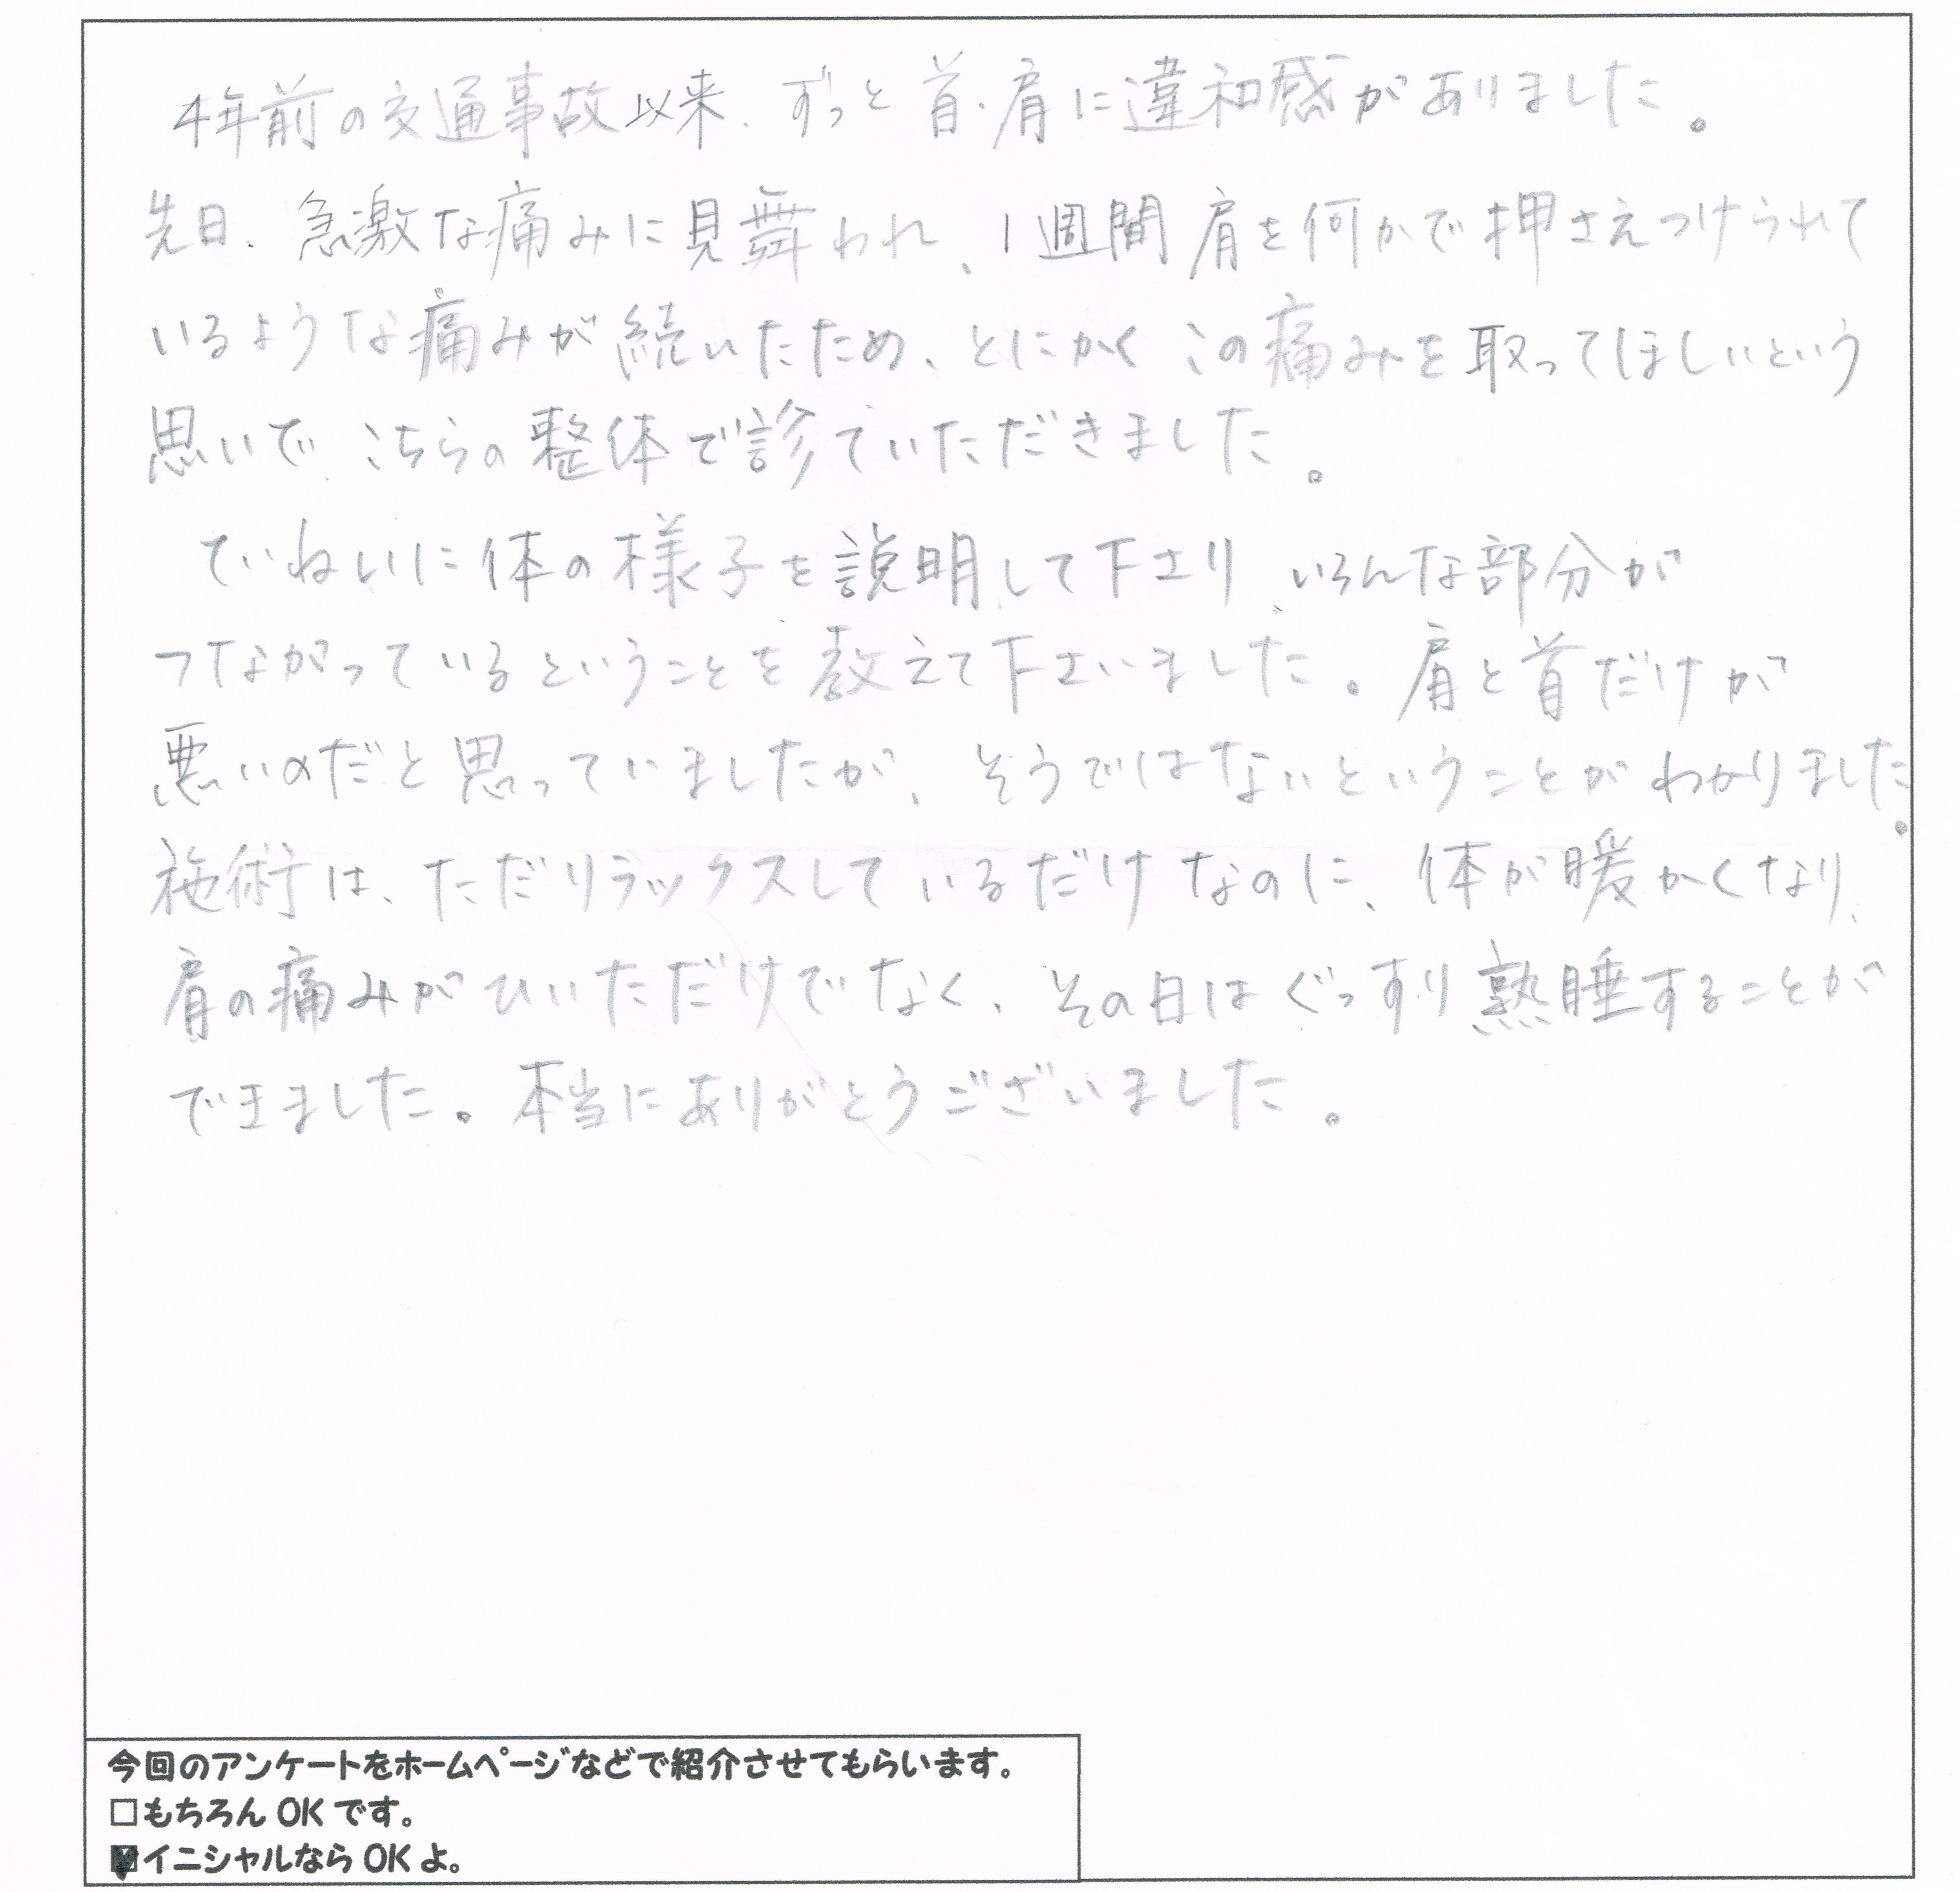 4年前の交通事故以来、ずっと首・肩に違和感がありました。
先日、急激な痛みに見舞われ、1週間肩を何かで押さえつけられて
いるような痛みが続いたため、とにかくこの痛みを取ってほしいという
思いで、こちらの整体で診ていただきました。
ていねいに体の様子を説明して下さり、いろんな部分が
つながっているということを教えて下さいました。肩と首だけが
悪いのだと思っていましたが、そうではないということがわかりました。
施術は、ただリラックスしているだけなのに、体が暖かくなり、
肩の痛みがひいただけでなく、その日はぐっすり熟睡することが
できました。本当にありがとうございました。
今回のアンケートをホームページなどで紹介させてもらいます。
□もちろんOKです。
☑イニシャルならOKよ。